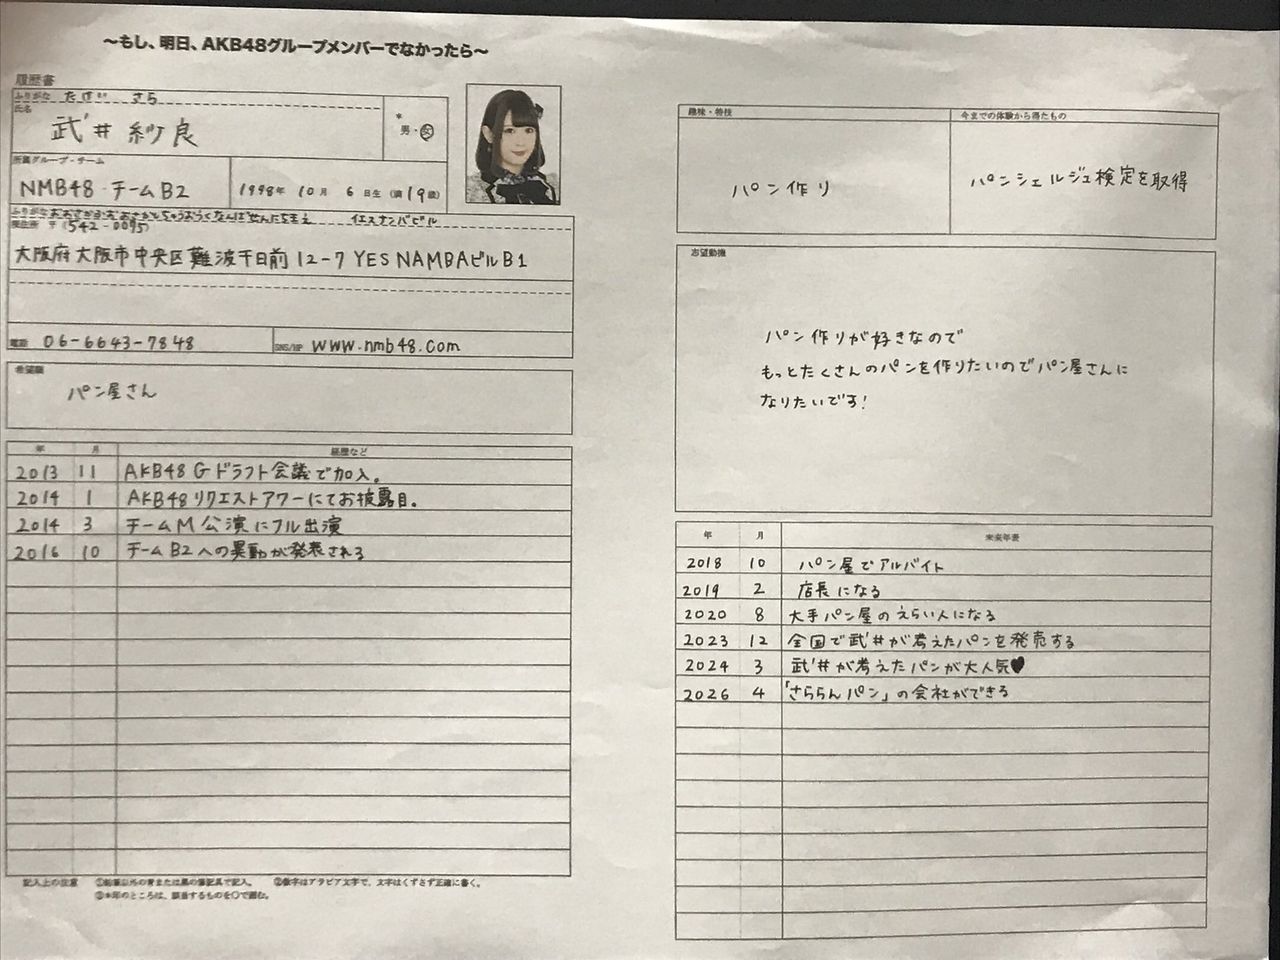 ～もし、明日、AKB48グループメンバーでなかったら～
履歴書
ふりがな たけい さら
氏名
武井 紗良
*
男・女
所属グループ・チーム
NMB48 チームB2
1998年 10月 6日生 (満19歳)
ふりがな おおさかふおおさかしちゅうおうくなんばせんにちまえ イエスナンバビル
現住所 〒(542-0095)
大阪府大阪市中央区難波千日前12-7 YES NAMBAビルB1
電話 06-6643-7848
SNS/HP www.nmb48.com
希望職
パン屋さん
年 月 経歴など
2013 11 AKB48Gドラフト会議で加入。
2014 1 AKB48リクエストアワーにてお披露目。
2014 3 チームM公演にフル出演
2016 10 チームB2への異動が発表される
記入上の注意 ①鉛筆以外の青または黒の筆記具で記入。 ②数字はアラビア文字で、文字はくずさず正確に書く。
③*印のところは、該当するものを○で囲む。
趣味・特技
パン作り
今までの体験から得たもの
パンシェルジュ検定を取得
志望動機
パン作りが好きなので
もっとたくさんのパンを作りたいのでパン屋さんに
なりたいです!
年 月 未来年表
2018 10 パン屋でアルバイト
2019 2 店長になる
2020 8 大手パン屋のえらい人になる
2023 12 全国で武井が考えたパンを発売する
2024 3 武井が考えたパンが大人気♥
2026 4 「さららんパン」の会社ができる